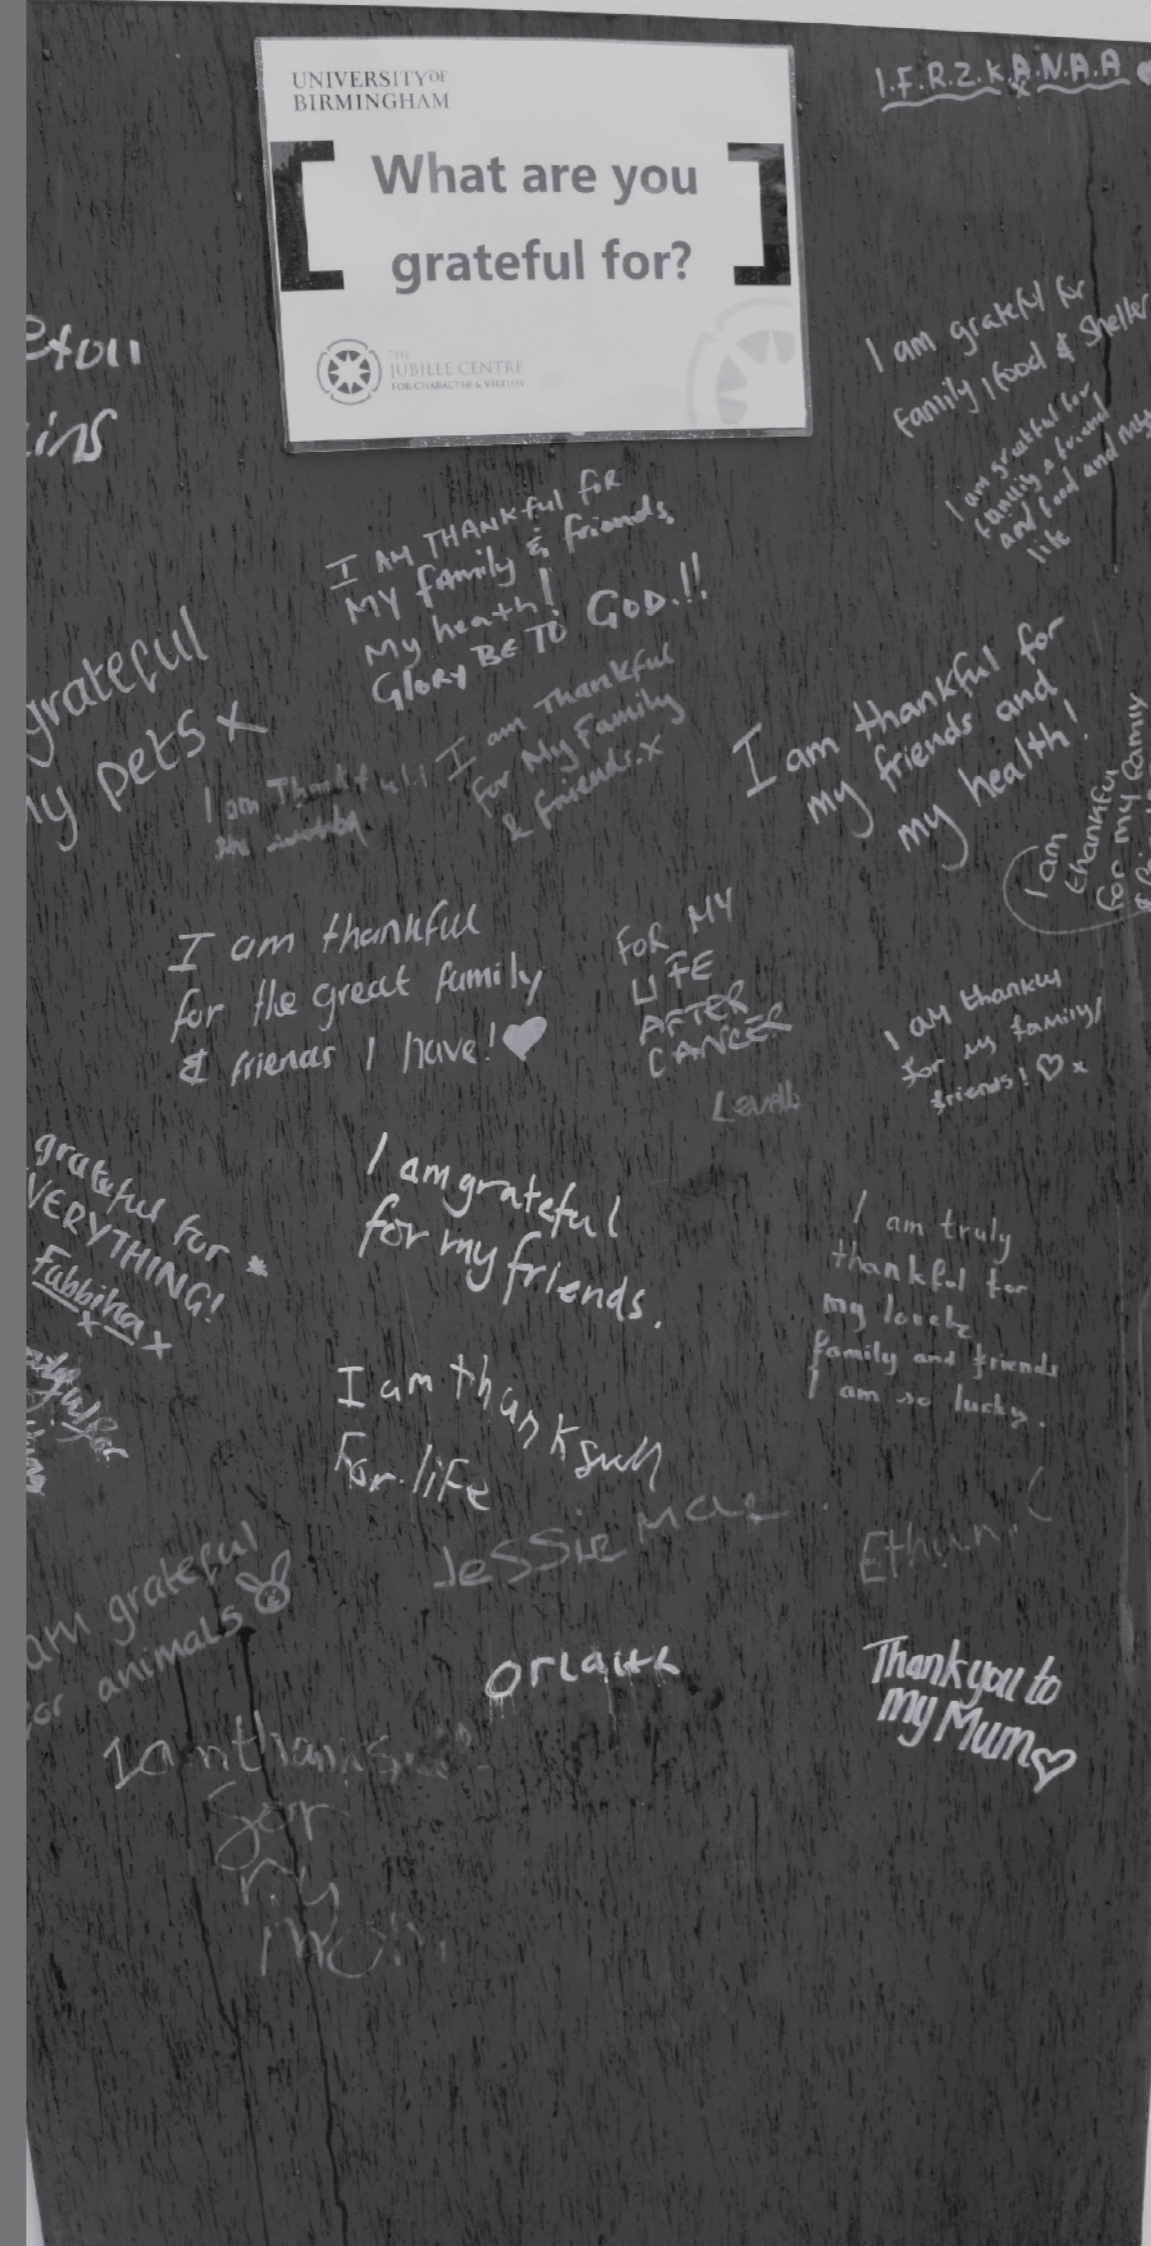 UNIVERSITY OF
BIRMINGHAM
What are you
grateful for?
THE
JUBILEE CENTRE
FOR CHARACTER & VIRTUES
I.F.R.Z.K.A.N.A.A
x
I am grateful for
family, food & Shelter
I am grateful for
family & friend
and food and my
life
I AM THANKful for
MY family & friends.
My heath!
Glory BE TO GOD.!!
grateful
pets x
I am Thankful
for My Family
& friends.x
I am thankful for
my friends and
my health!
I am
thankful
for my family
I am
I am thankful
for the great family
& friends I have!
FOR MY
LIFE
AFTER
CANCER
I am
for my family/
friends! x
grateful for
VERYTHING!
Fabbiha
x x
I am grateful
for my friends.
I am truly
thankful for
my
family and friends
I am so lucky.
I am
For life
Jessie Mae
Ethan
am grateful
animals
Orlaith
Thank you to
my Mum
for
my